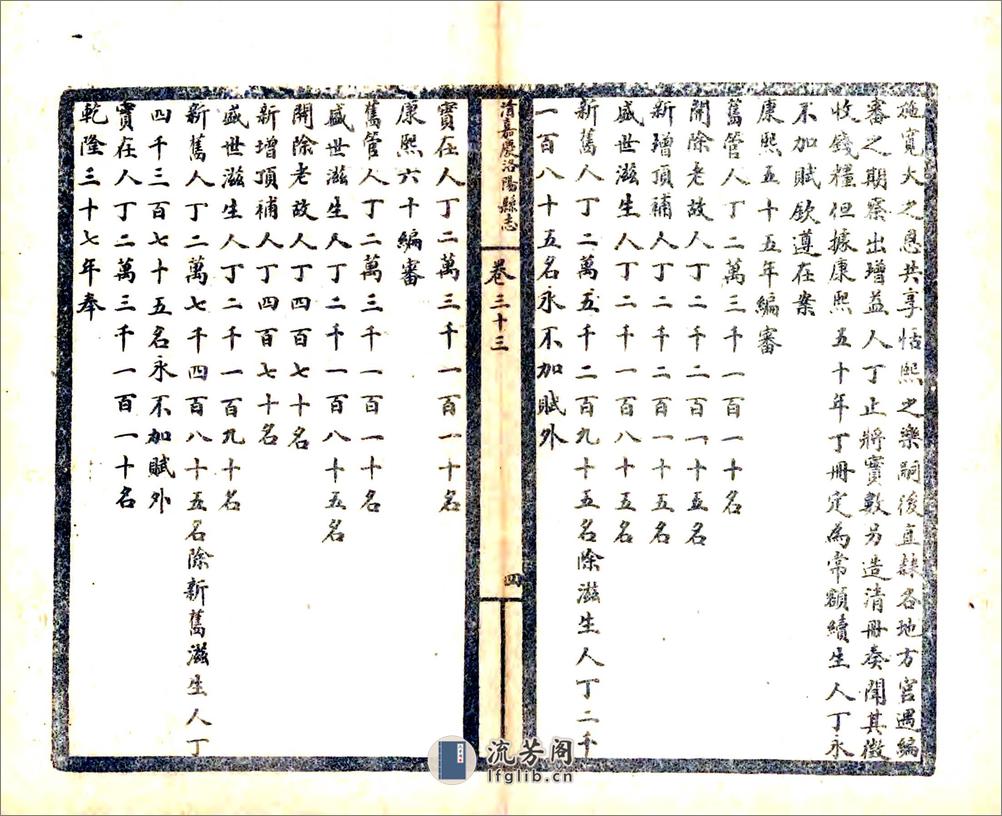 施寬大之恩共享恬熙之樂嗣後直隸各地方官遇編
審之期察出增益人丁止將實數另造清冊奏聞其徵
收錢糧但據康熙五十年丁冊定為常額續生人丁永
不加賦欽遵在案
康熙五十五年編審
舊管人丁二萬三千一百一十名
開除老故人丁二千二百一十五名
新增頂補人丁二千二百一十五名
盛世滋生人丁二千一百八十五名
新舊人丁二萬五千二百九十五名除滋生人丁二千
一百八十五名永不加賦外
清嘉慶洛陽縣志
卷三十三
四
實在人丁二萬三千一百一十名
康熙六十編審
舊管人丁二萬三千一百一十名
盛世滋生人丁二千一百八十五名
開除老故人丁四百七十名
新增頂補人丁四百七十名
盛世滋生人丁二千一百九十名
新舊人丁二萬七千四百八十五名除新舊滋生人丁
四千三百七十五名永不加賦外
實在人丁二萬三千一百一十名
乾隆三十七年奉
流芳阁
lfglib.cn